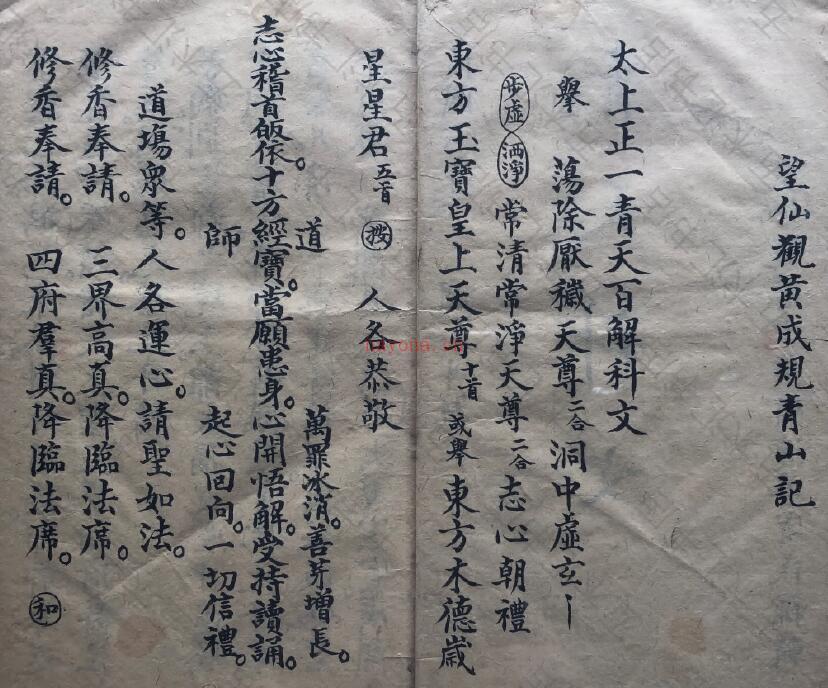 望仙觀黃成規青山記
太上正一青天百解科文
舉 蕩除厭穢天尊二合洞中虛玄丨
步虛 洒淨 常清常淨天尊二合志心朝禮
東方玉寶皇上天尊十首 或舉東方木德歲
星星君五首 人各恭敬
志心稽首皈依。十方經寶。當願患身。心開悟解。受持讀誦。
道 萬罪冰消。善芽增長。
師 起心回向。一切信禮。
道塲衆等。人各運心。請聖如法。
修香奉請。三界高真。降臨法席。
修香奉請。四府羣真。降臨法席。和